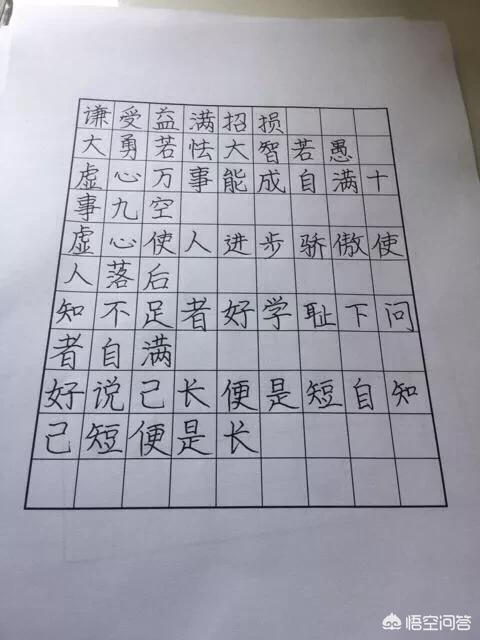 谦受益满招损
大勇若怯大智若愚
虚心万事能成自满十
事九空
虚心使人进步骄傲使
人落后
知不足者好学耻下问
者自满
好说己长便是短自知
己短便是长
悟空问答